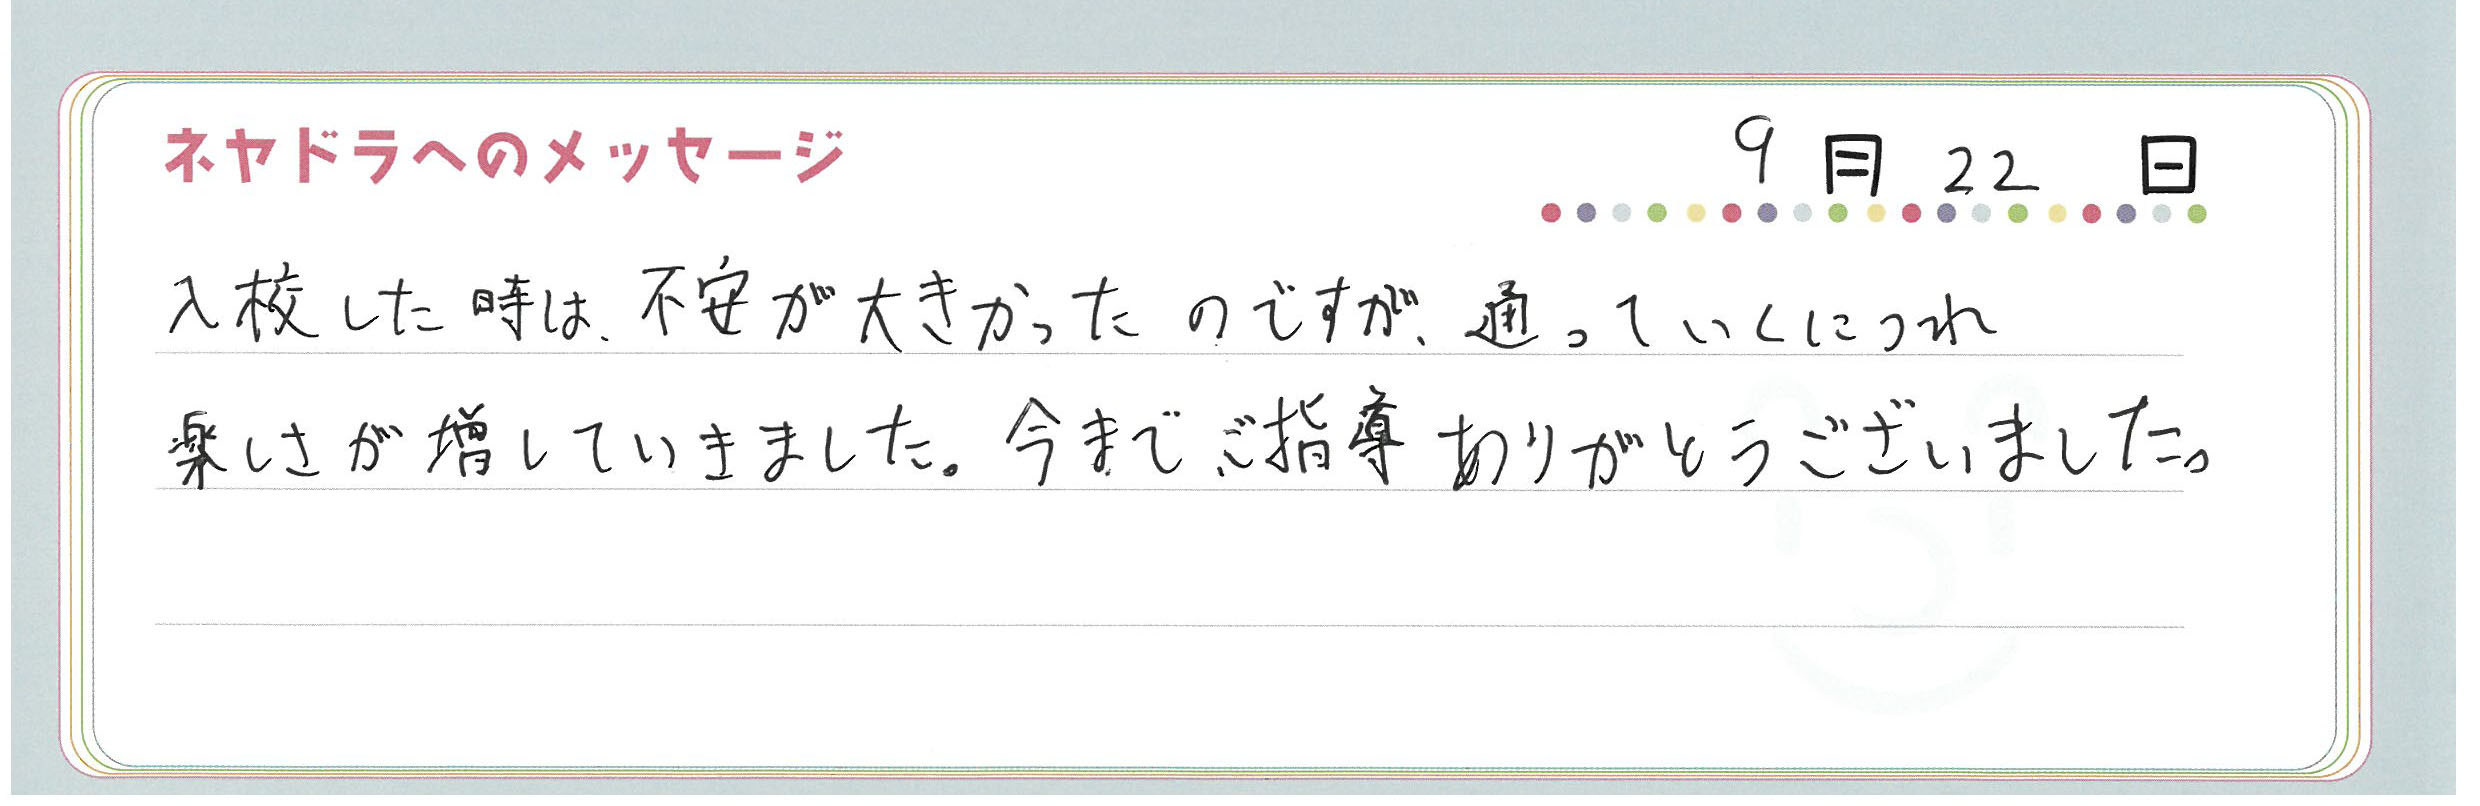 ネヤドラへのメッセージ
9月22日
入校した時は、不安が大きかったのですが、通っていくにつれ
楽しさが増していきました。今までご指導ありがとうございました。